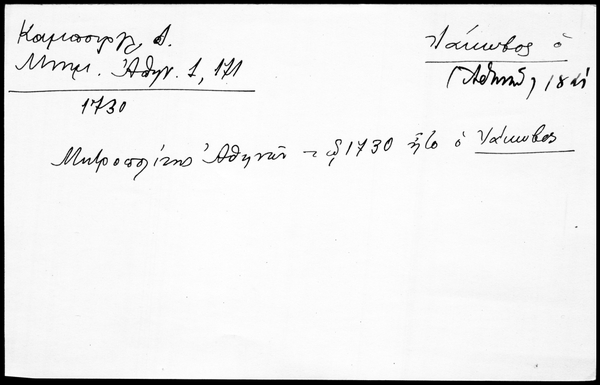 Καμπούρογλ. Δ.
Μνημ. Ἀθην. 1, 171
1730
Ἰάκωβος ὁ
(Ἀθηνῶν) 18
Μητροπολίτης Ἀθηνῶν τῷ 1730 ἦτο ὁ Ἰάκωβος